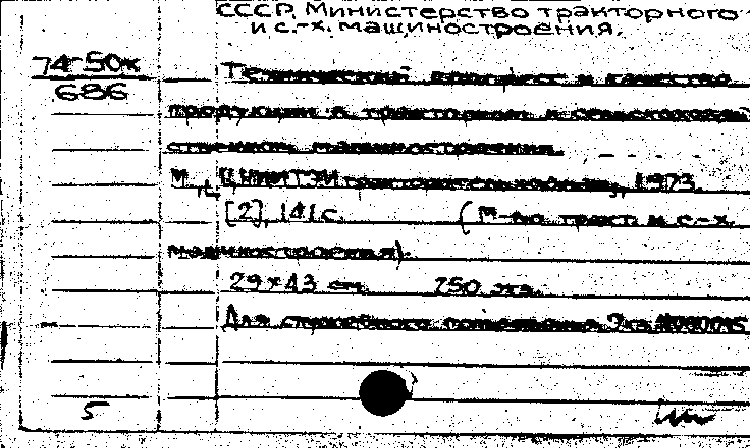 СССР. Министерство тракторного
и с.-х. машиностроения.
74-50ж
686
Технический прогресс и качество
продукции в тракторном и сельскохозяй
ственном машиностроении.
М., ЦНИИТЭИ 1973.
[2], 141 с. (М-во тракт. и с.-х.
машиностроения).
29×43 см. 750 экз.
Для служебного пользования. Экз.
5